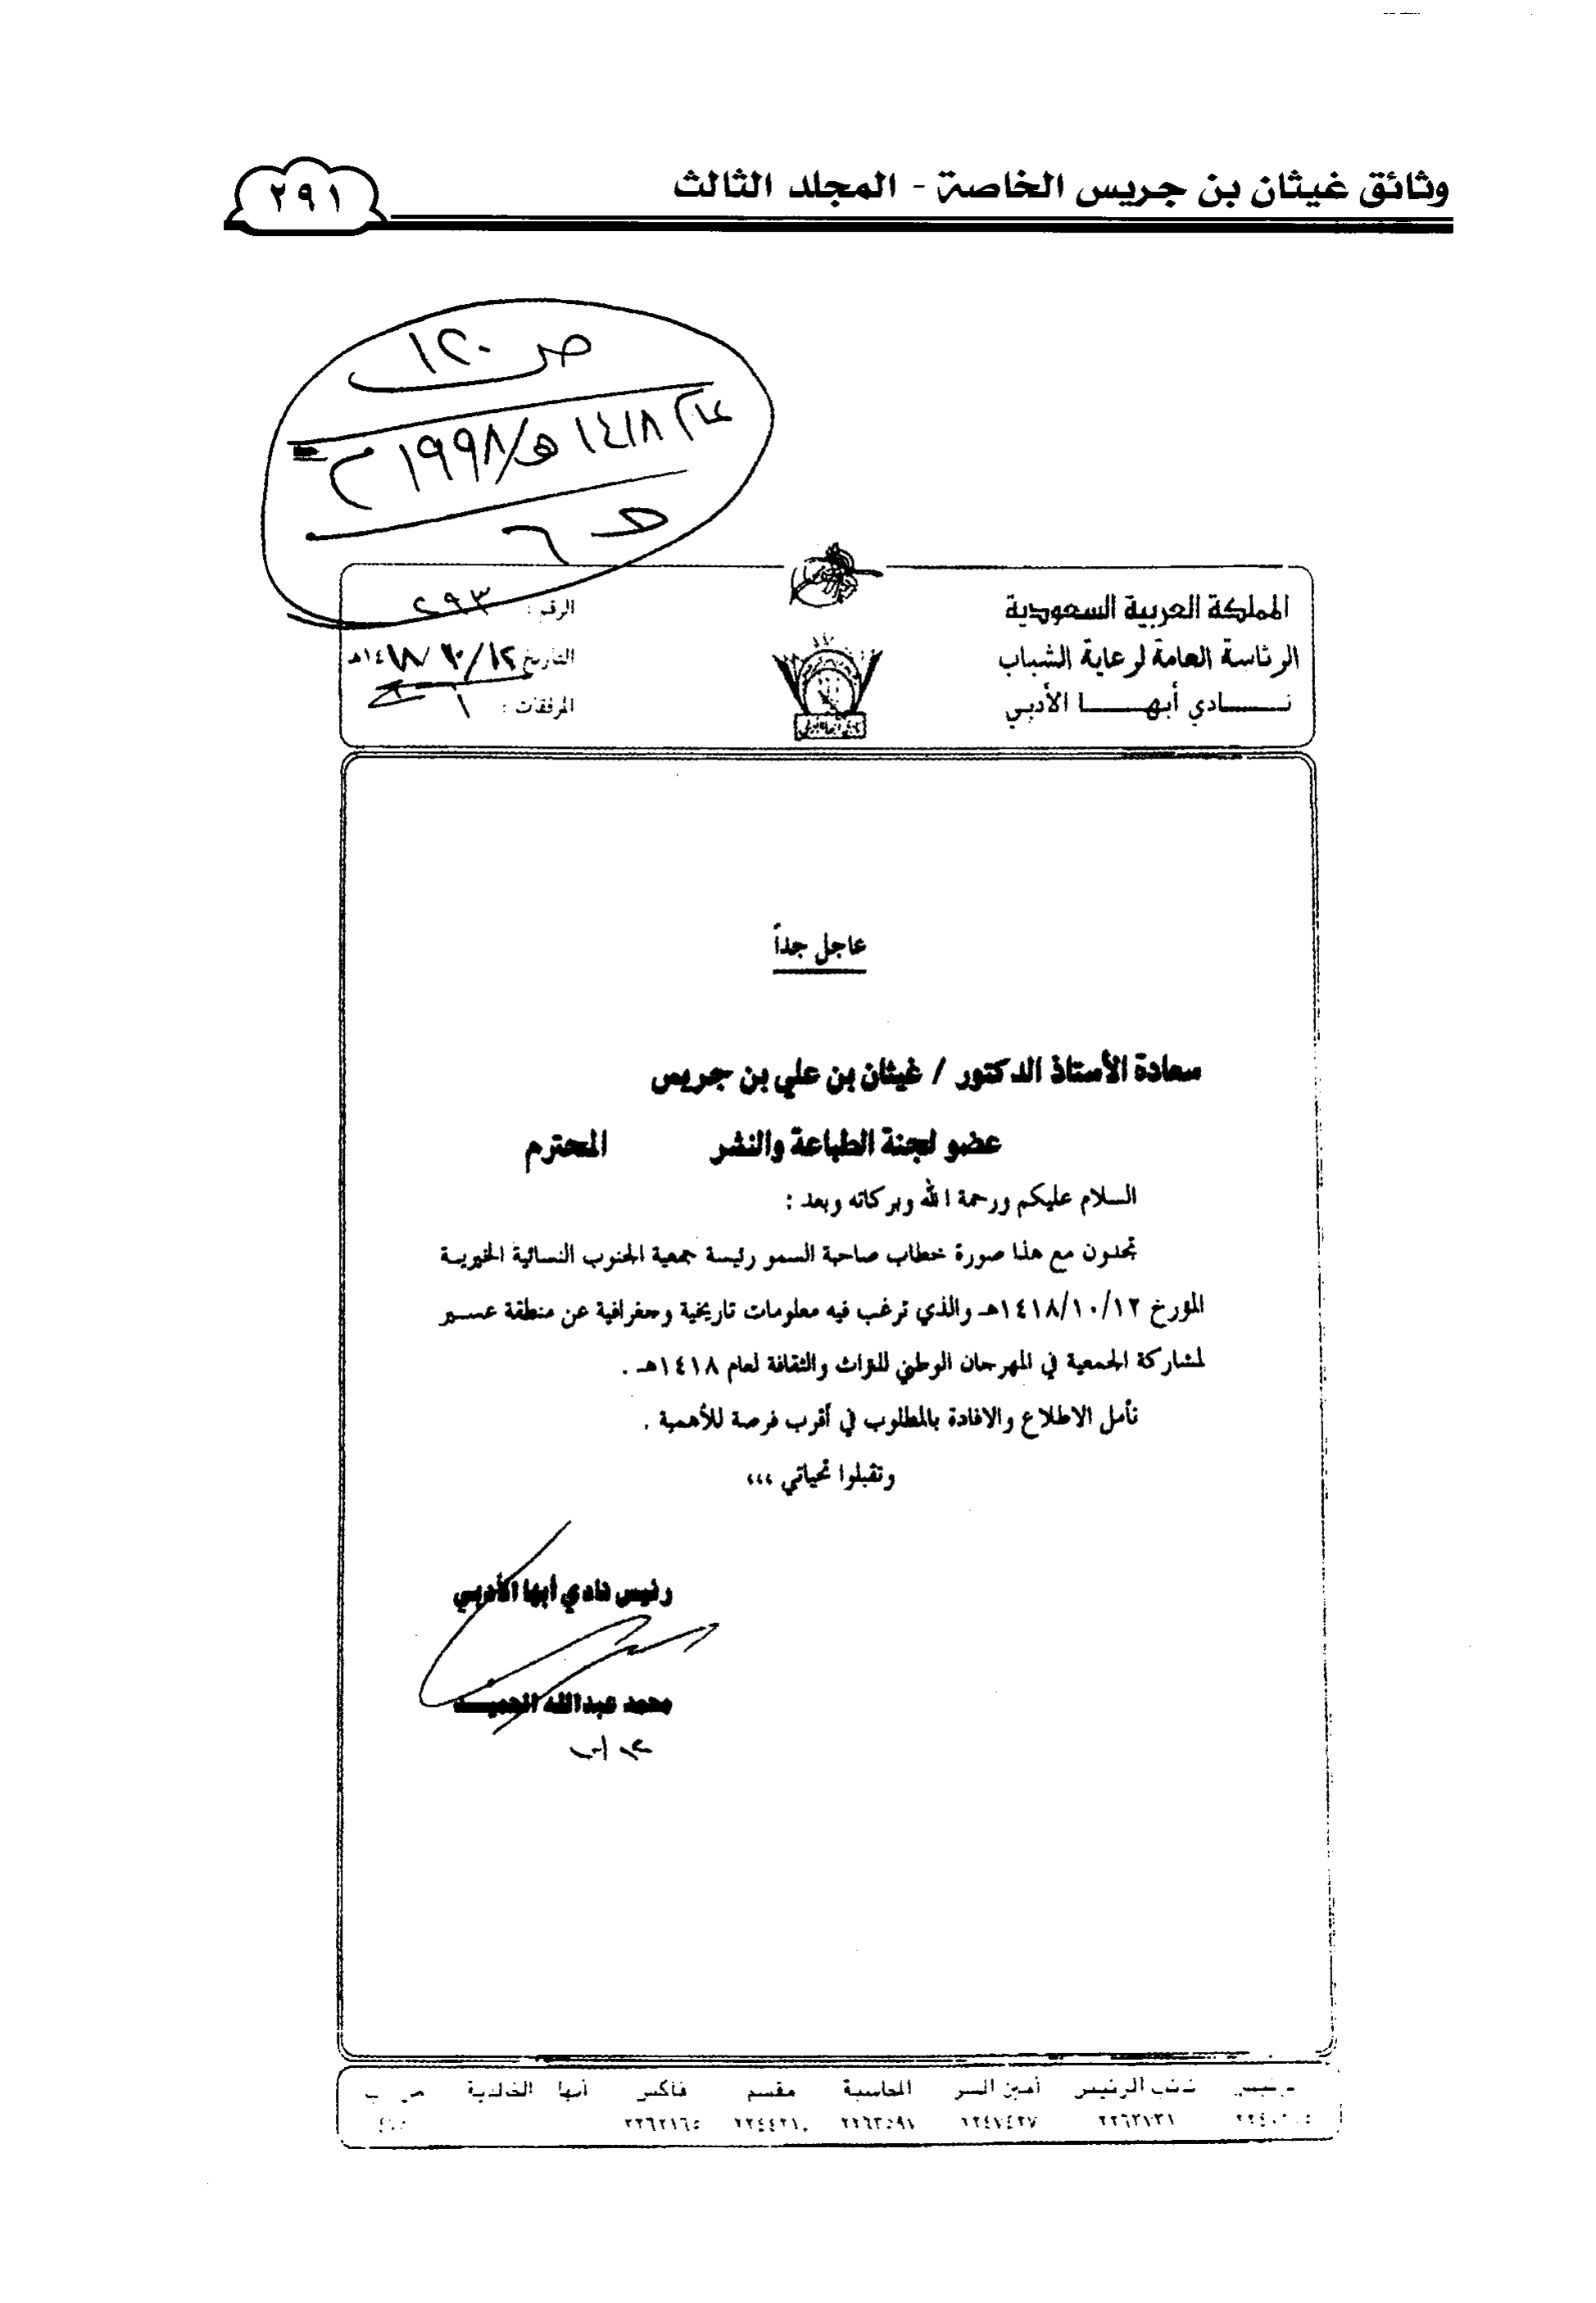 وثائق غيثان بن جريس الخاصة - المجلد الثالث
٢٩١
ص ١٢٠
عام ١٤١٨هـ/١٩٩٨م
المملكة العربية السعودية
الرئاسة العامة لرعاية الشباب
نـــادي أبهـــا الأدبي
الرقم : ٢٩٣
التاريخ ١٢/١٠/١٤١٨هـ
المرفقات : ١
عاجل جداً
سعادة الأستاذ الدكتور / غيثان بن علي بن جريس
عضو لجنة الطباعة والنشر المحترم
السلام عليكم ورحمة الله وبركاته وبعد :
تجدون مع هذا صورة خطاب صاحبة السمو رئيسة جمعية الجنوب النسائية الخيرية
المؤرخ ١٤١٨/١٠/١٢هـ والذي ترغب فيه معلومات تاريخية وجغرافية عن منطقة عسير
لمشاركة الجمعية في المهرجان الوطني للتراث والثقافة لعام ١٤١٨هـ .
نأمل الاطلاع والافادة بالمطلوب في أقرب فرصة للأهمية .
وتقبلوا تحياتي ،،،
رئيس نادي أبها الأدبي
محمد عبدالله الحميـــد
الرئيس نائب الرئيس أمين السر المحاسبة مقسم فاكس أبها الخالدية ص ب
٢٢٦٣١٣١ ٢٢٤٧٤٢٧ ٢٢٦٣٥٩١ ٢٢٤٤٢١٠ ٢٢٦٢١٦٥